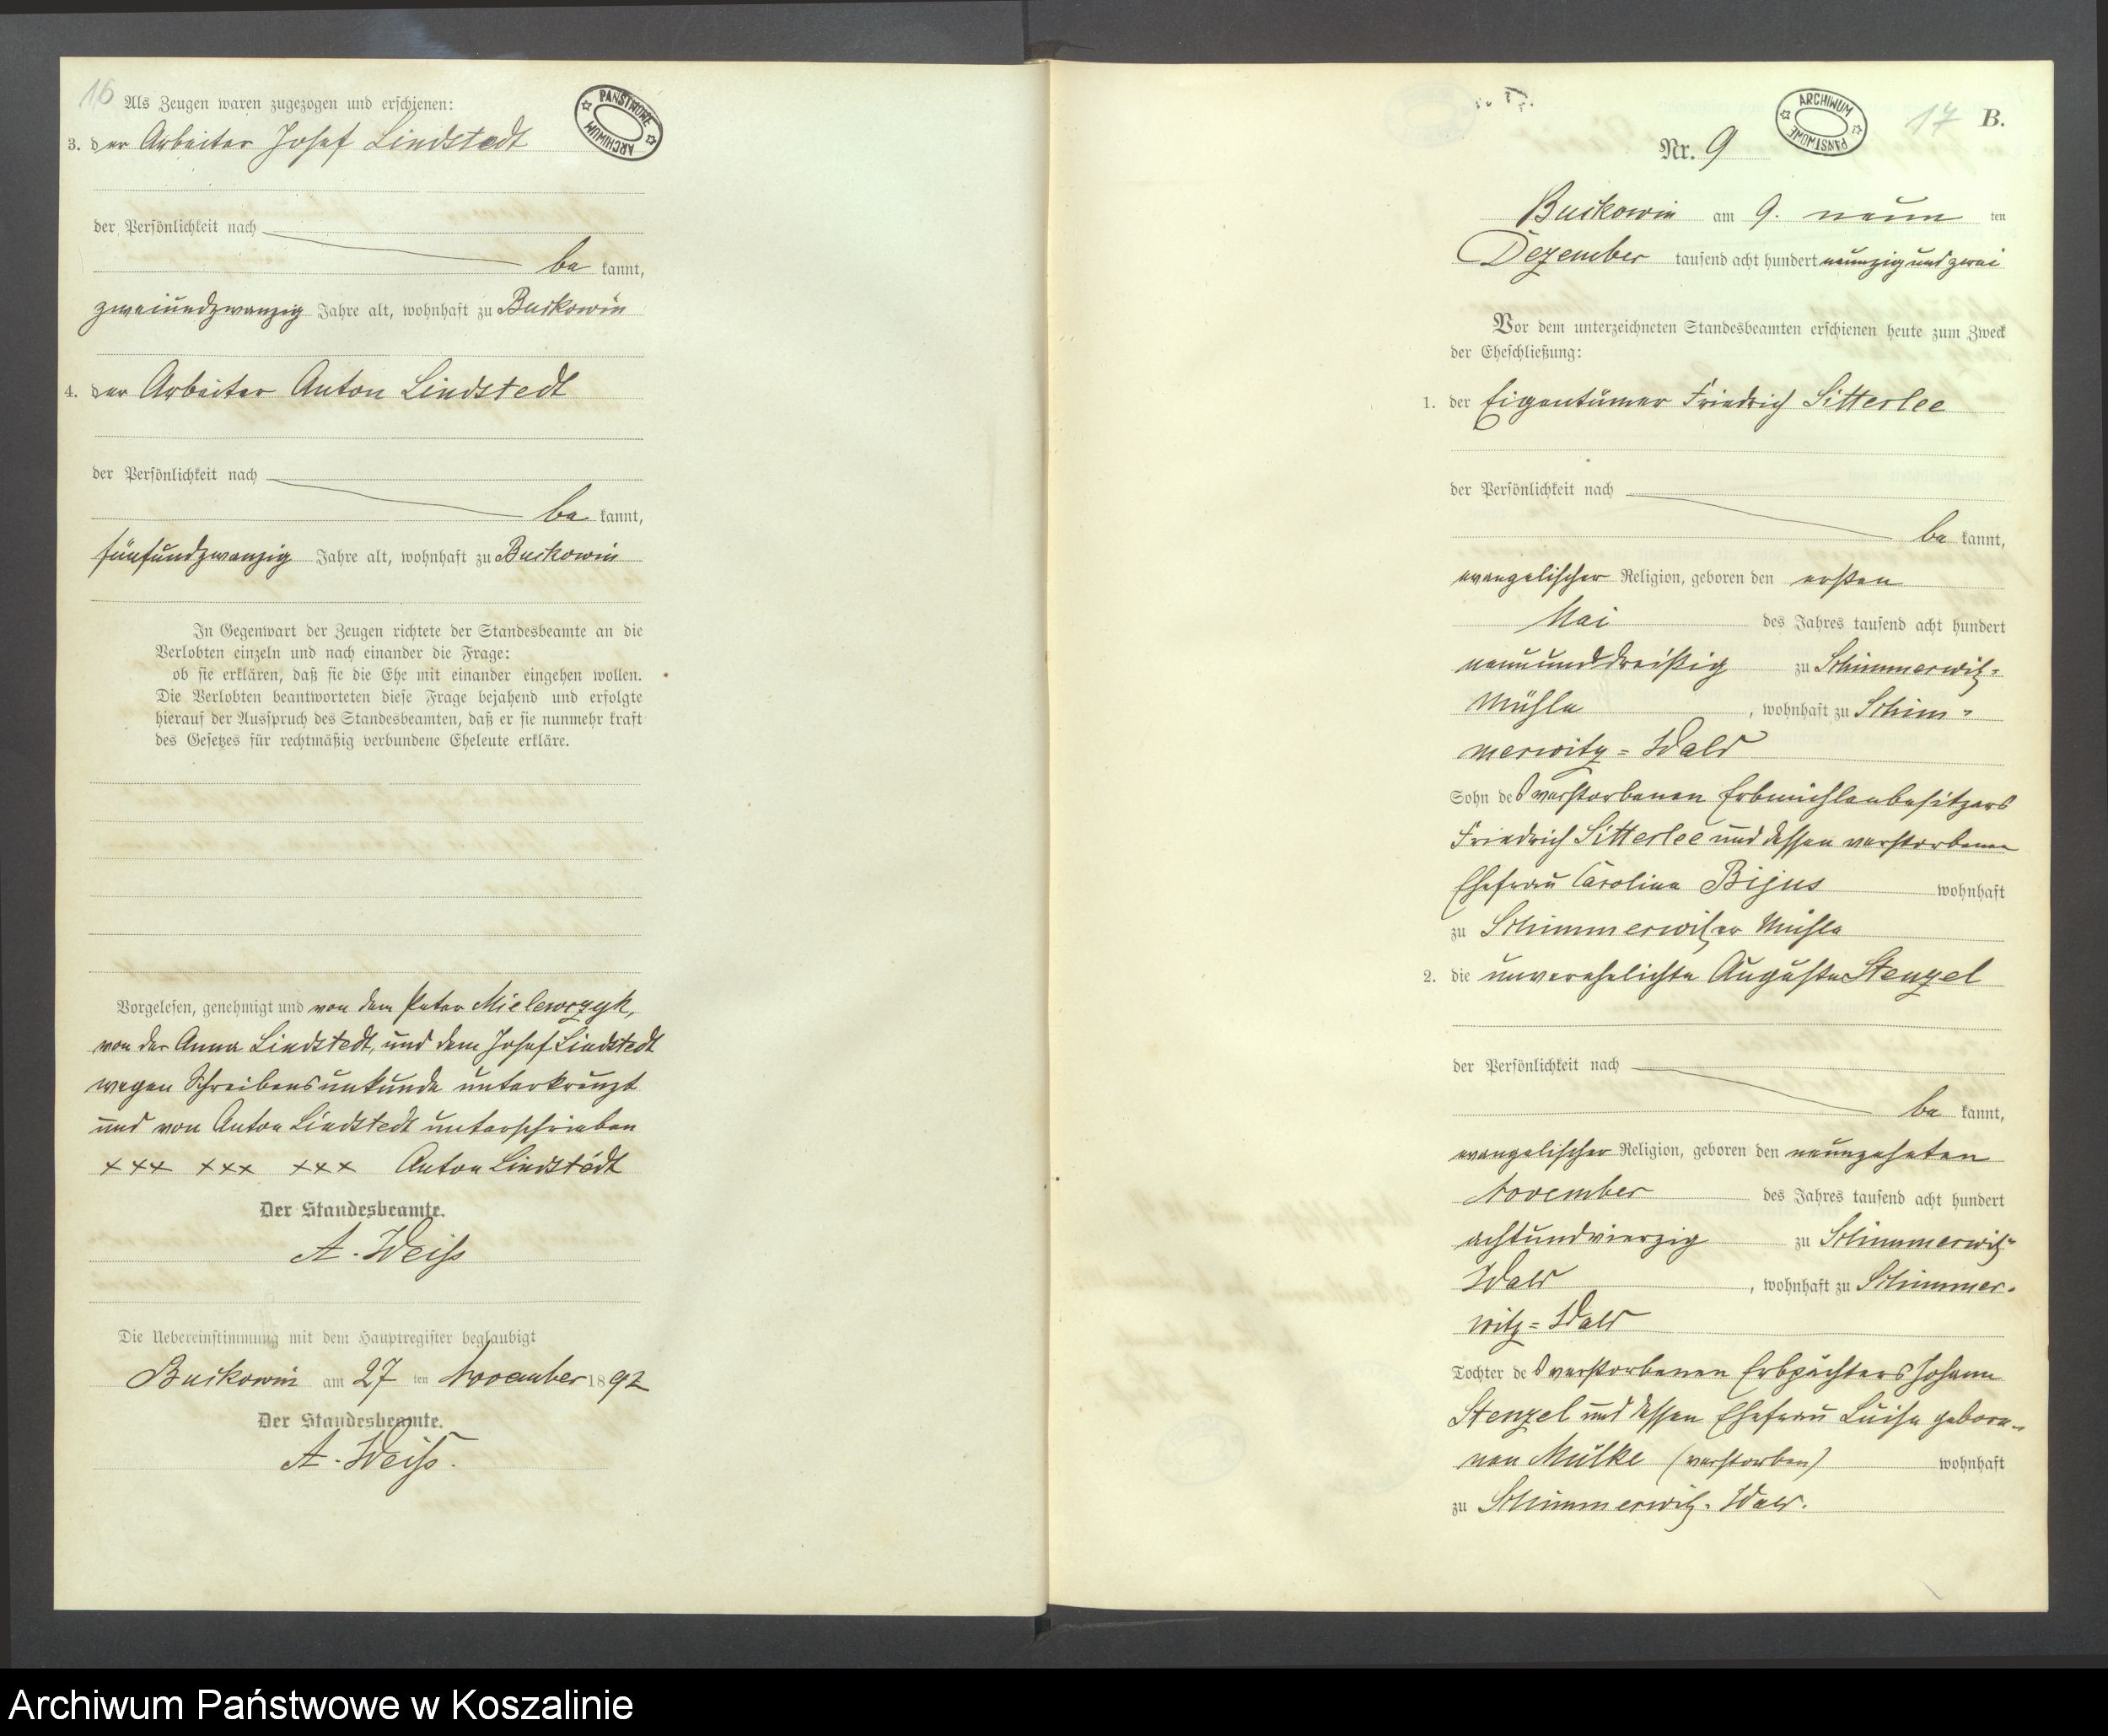 16
Als Zeugen waren zugezogen und erschienen:
PAŃSTWOWE
ARCHIWUM
3. der Arbeiter Josef Lindstedt
der Persönlichkeit nach
be kannt,
zweiundzwanzig Jahre alt, wohnhaft zu Buckowin
4. der Arbeiter Anton Lindstedt
der Persönlichkeit nach
be kannt,
fünfundzwanzig Jahre alt, wohnhaft zu Buckowin
In Gegenwart der Zeugen richtete der Standesbeamte an die
Verlobten einzeln und nach einander die Frage:
ob sie erklären, daß sie die Ehe mit einander eingehen wollen.
Die Verlobten beantworteten diese Frage bejahend und erfolgte
hierauf der Ausspruch des Standesbeamten, daß er sie nunmehr kraft
des Gesetzes für rechtmäßig verbundene Eheleute erkläre.
Vorgelesen, genehmigt und von dem Peter Mielewczyk,
von der Anna Lindstedt, und dem Josef Lindstedt
wegen Schreibensunkunde unterkreuzt
und von Anton Lindstedt unterschrieben
+++ +++ +++ Anton Lindstedt
Der Standesbeamte.
A. Weiß
Die Uebereinstimmung mit dem Hauptregister beglaubigt
Buckowin am 27 ten November 1892
Der Standesbeamte.
A. Weiß.
17 B.
ARCHIWUM
PAŃSTWOWE
Nr. 9
Buckowin am 9. neun ten
Dezember tausend acht hundert neunzig und zwei
Vor dem unterzeichneten Standesbeamten erschienen heute zum Zweck
der Eheschließung:
1. der Eigentümer Friedrich Sitterlee
der Persönlichkeit nach
be kannt,
evangelischer Religion, geboren den ersten
Mai des Jahres tausend acht hundert
neununddreißig zu Schimmerwitz-
Mühle, wohnhaft zu Schim-
merwitz-Wald
Sohn des verstorbenen Erbmühlenbesitzers
Friedrich Sitterlee und dessen verstorbene
Ehefrau Caroline Bijus wohnhaft
zu Schimmerwitzer Mühle
2. die unverehelichte Auguste Stenzel
der Persönlichkeit nach
be kannt,
evangelischer Religion, geboren den neunzehnten
November des Jahres tausend acht hundert
achtundvierzig zu Schimmerwitz-
Wald, wohnhaft zu Schimmer-
witz-Wald
Tochter des verstorbenen Erbpächters Johann
Stenzel und dessen Ehefrau Luise gebore-
nen Mülke (verstorben) wohnhaft
zu Schimmerwitz-Wald.
Archiwum Państwowe w Koszalinie